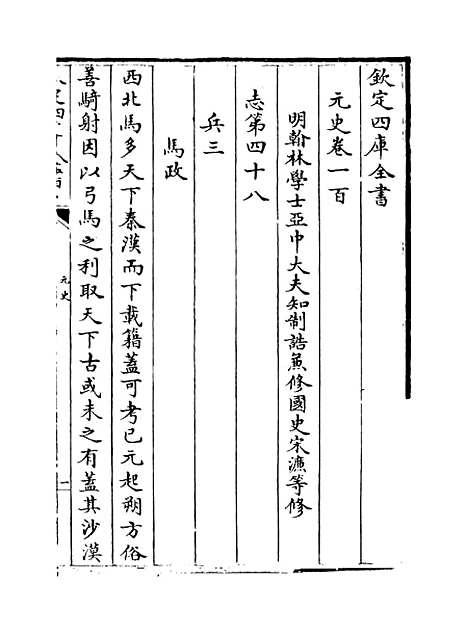 欽定四庫全書
元史卷一百
明翰林學士亞中大夫知制誥兼修國史宋濂等修
志第四十八
兵三
馬政
西北馬多天下秦漢而下載籍蓋可考已元起朔方俗
善騎射因以弓馬之利取天下古或未之有蓋其沙漠
元史
一